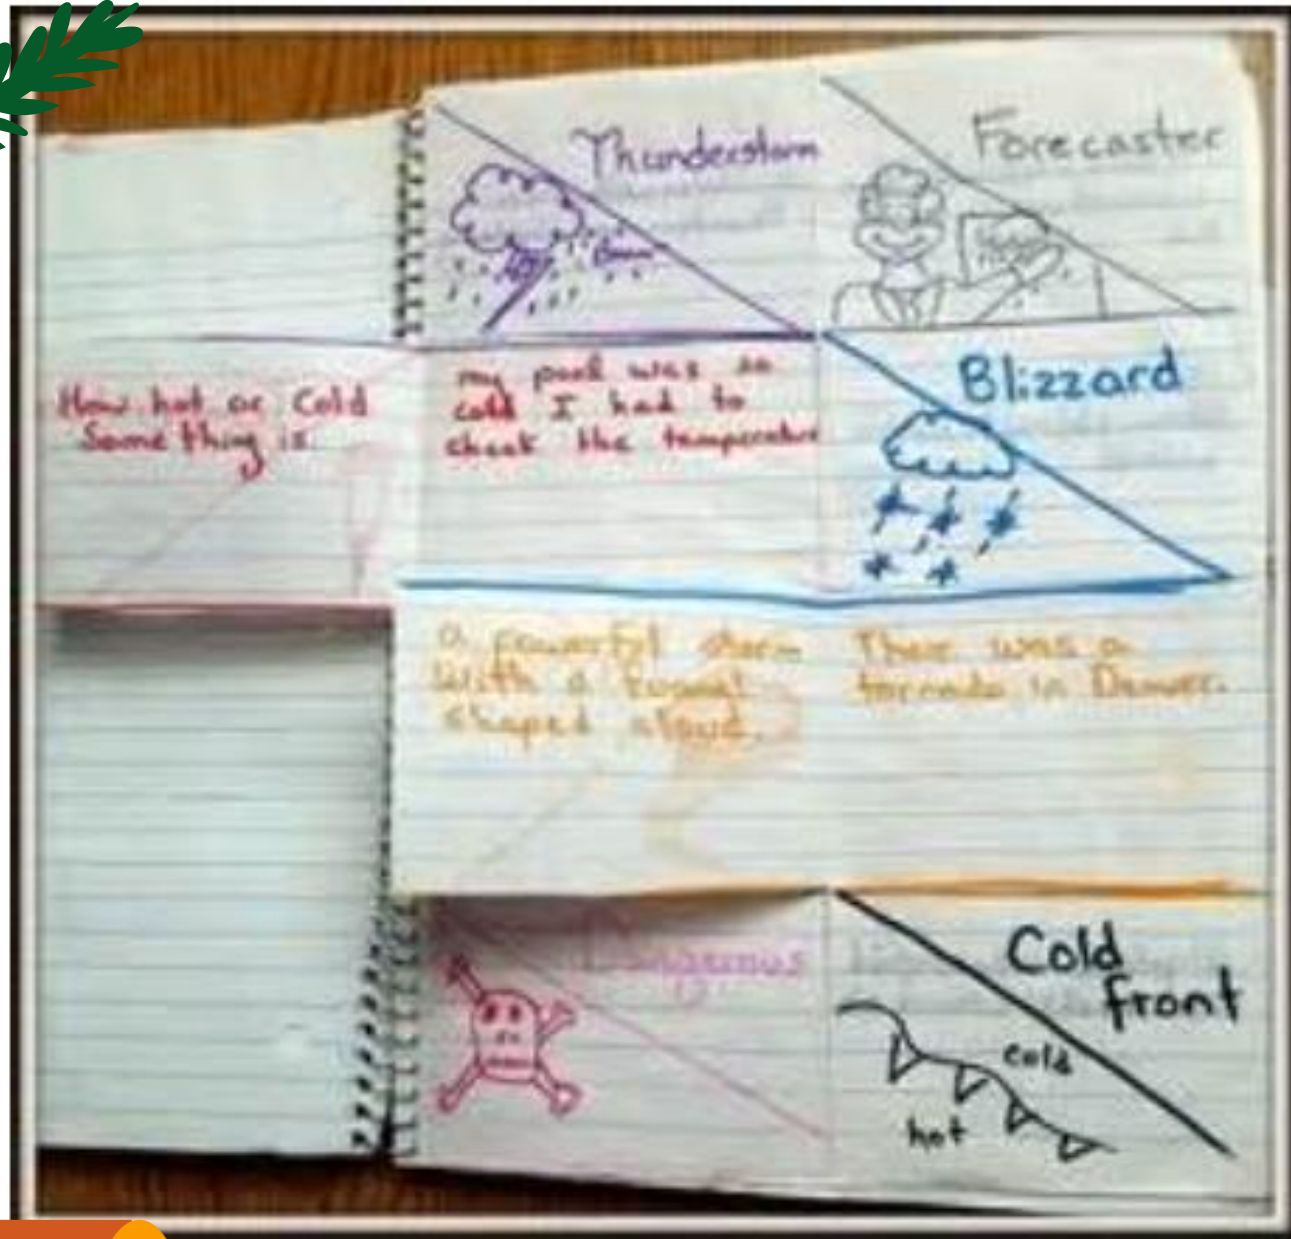 Thunderstorm
Forecaster
Boom
How hot or Cold
Something is
my pool was so
cold I had to
check the temperature
Blizzard
a powerful storm
with a funnel
shaped cloud.
There was a
tornado in Denver.
Dangerous
Cold
front
cold
hot